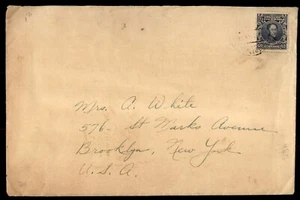 Mrs. A. White
576- St Marks Avenue
Brooklyn, New York
U.S.A.